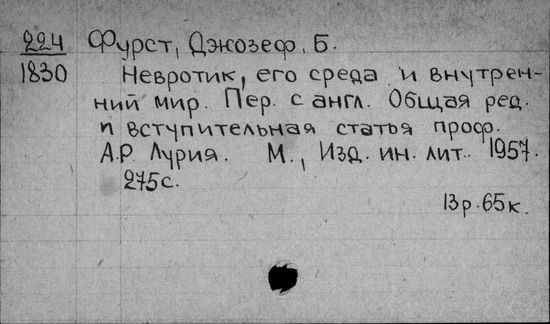 224 Фурст, Джозеф, Б.
1830 Невротик, его среда и внутрен-
ний мир. Пер. с англ. Общая ред.
и вступительная статья проф.
А.Р. Лурия. М., Изд. ин. лит. 1957.
275с.
13р.65к.